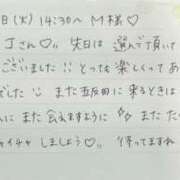 日(火) 14:30～ M様♡
Jさん♡" 先日は 選んで頂いて
ございました!! とっても楽しくってあ
でした!! また五反田に来るときは
んに また 会えますように また た
イチャ しましょう♡" 待ってますね